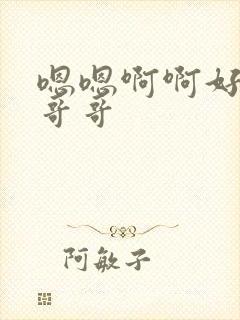 嗯嗯啊啊好
哥哥
阿敏子